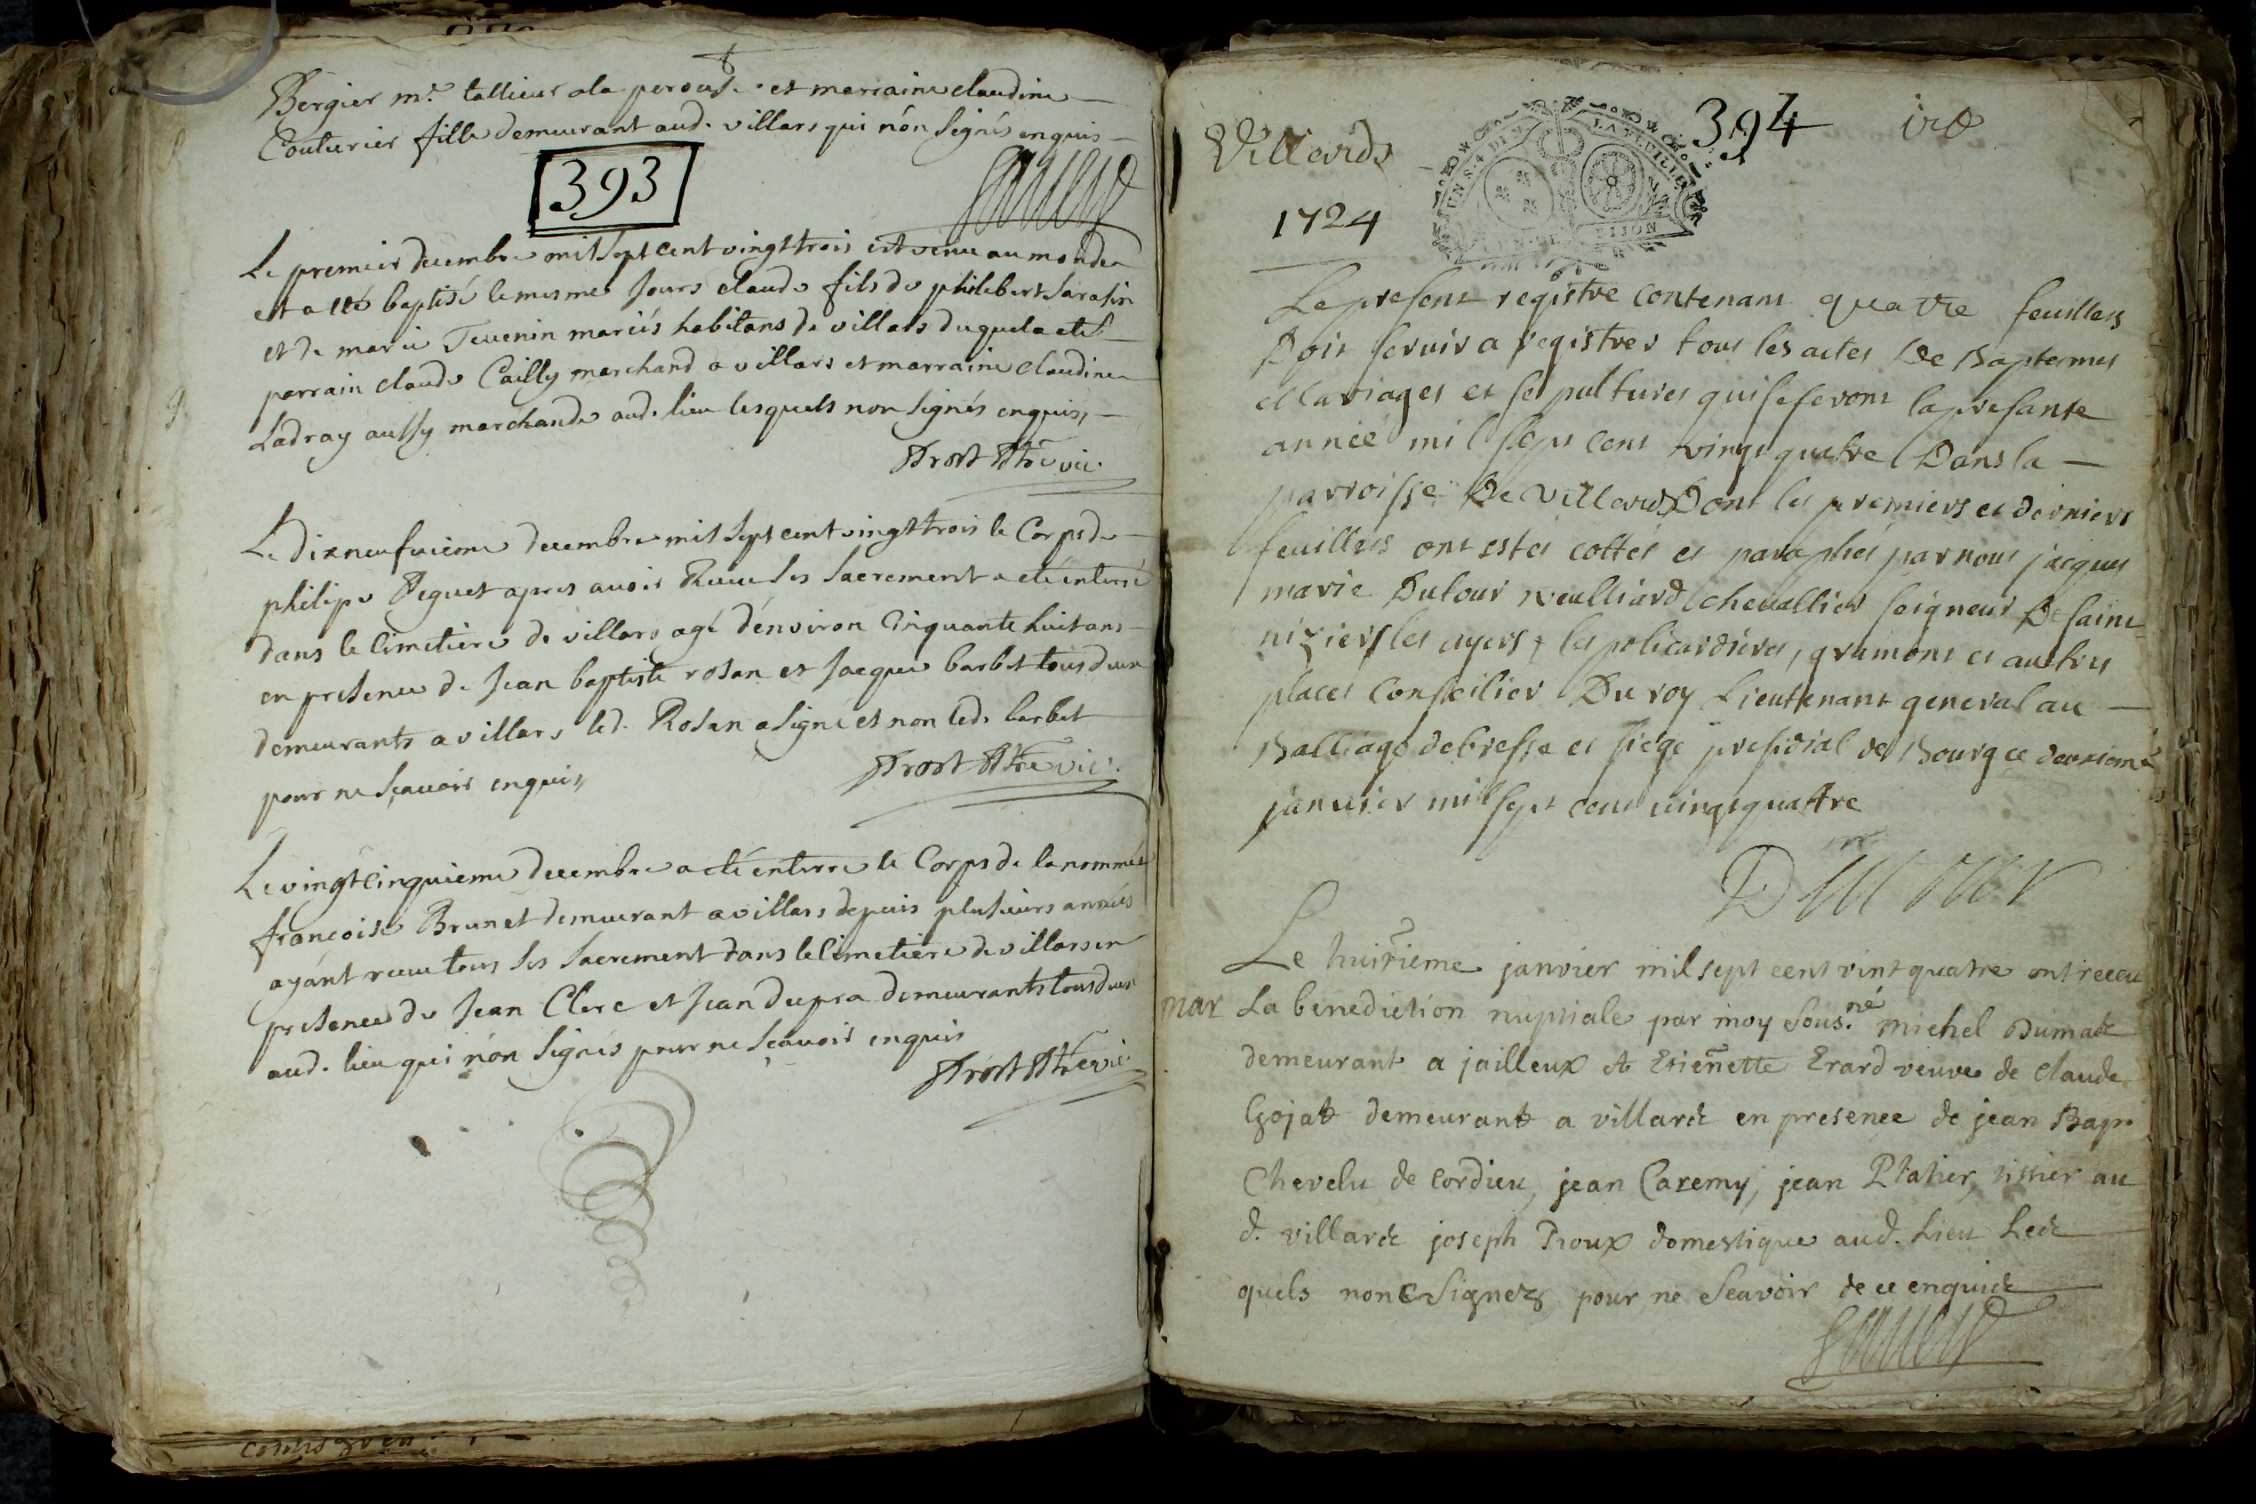 Bergier m.e tallieur a la perouse et marraine claudine
Couturier fille demeurant aud. villars qui n'ón signés enquis
393
Le premier decembre mil sept cent vingt trois est venu au monde
et a eté baptisé le mesme jours claude fils de philibert Sarasin
et de marie Tevenin mariés habitans de villars duquel a eté
parrain claude Cailly marchand a villars et marraine claudine
Ladray aussy marchande aud. lieu lesquels non signés enquis,
Le dixneufvieme decembre mil sept cent vingt trois le Corps de
philipe Peguet apres avoir Receu ses sacrement a eté enterré
dans le cimetiere de villars agé d'environ Cinquante huit ans
en presence de Jean baptiste rosan et Jacque barbet tous deux
demeurants a villars led. Rosan a signé et non led. barbet
pour ne sçavoir enquis
Le vingt cinquieme decembre a eté enterré le Corps de la nommée
francoise Brunet demeurant a villars depuis plusieurs années
ayánt receu tous ses sacrement dans le Cimetiere de villars en
presence de Jean Clerc et Jean dupra demeurants tous deux
aud. lieu qui n'ón signés pour ne sçavoir enquis
Villards
394
1724
UN S. 4 D. LA FEUILLE
DIJON
Le present registre contenant quatre feuillets
Doit servir a registrer tous les actes De Baptemes
Mariages et sepultures qui se feront la presante
année mil sept cent vingt quatre Dans la
parroisse De villards Dont les premiers et derniers
feuillets ont estés cottés et paraphés par nous jacques
marie Dutour vuulliard chevallier seigneur De saint
niziers les ayers & les policardieres, grumont et autres
places Conseilier Du roy Lieutenant general au
Balliage de bresse et siege presidial de Bourg ce deuxieme
janvier mil sept cent vingt quattre
Dutour
Le huitiéme janvier mil sept cent vint quatre ont receu
mar La benediction nuptiale par moy sous.né michel Dumas
demeurant a jailleux et Etiennette Erard veuve de claude
Gojat demeurant a villars en presence de jean Bap.
Chevelu de cordieu, jean Caremy, jean Platier, tissier au
d. villars joseph Proux domestique aud. lieu Les
quels nonc signez pour ne scavoir de ce enquis